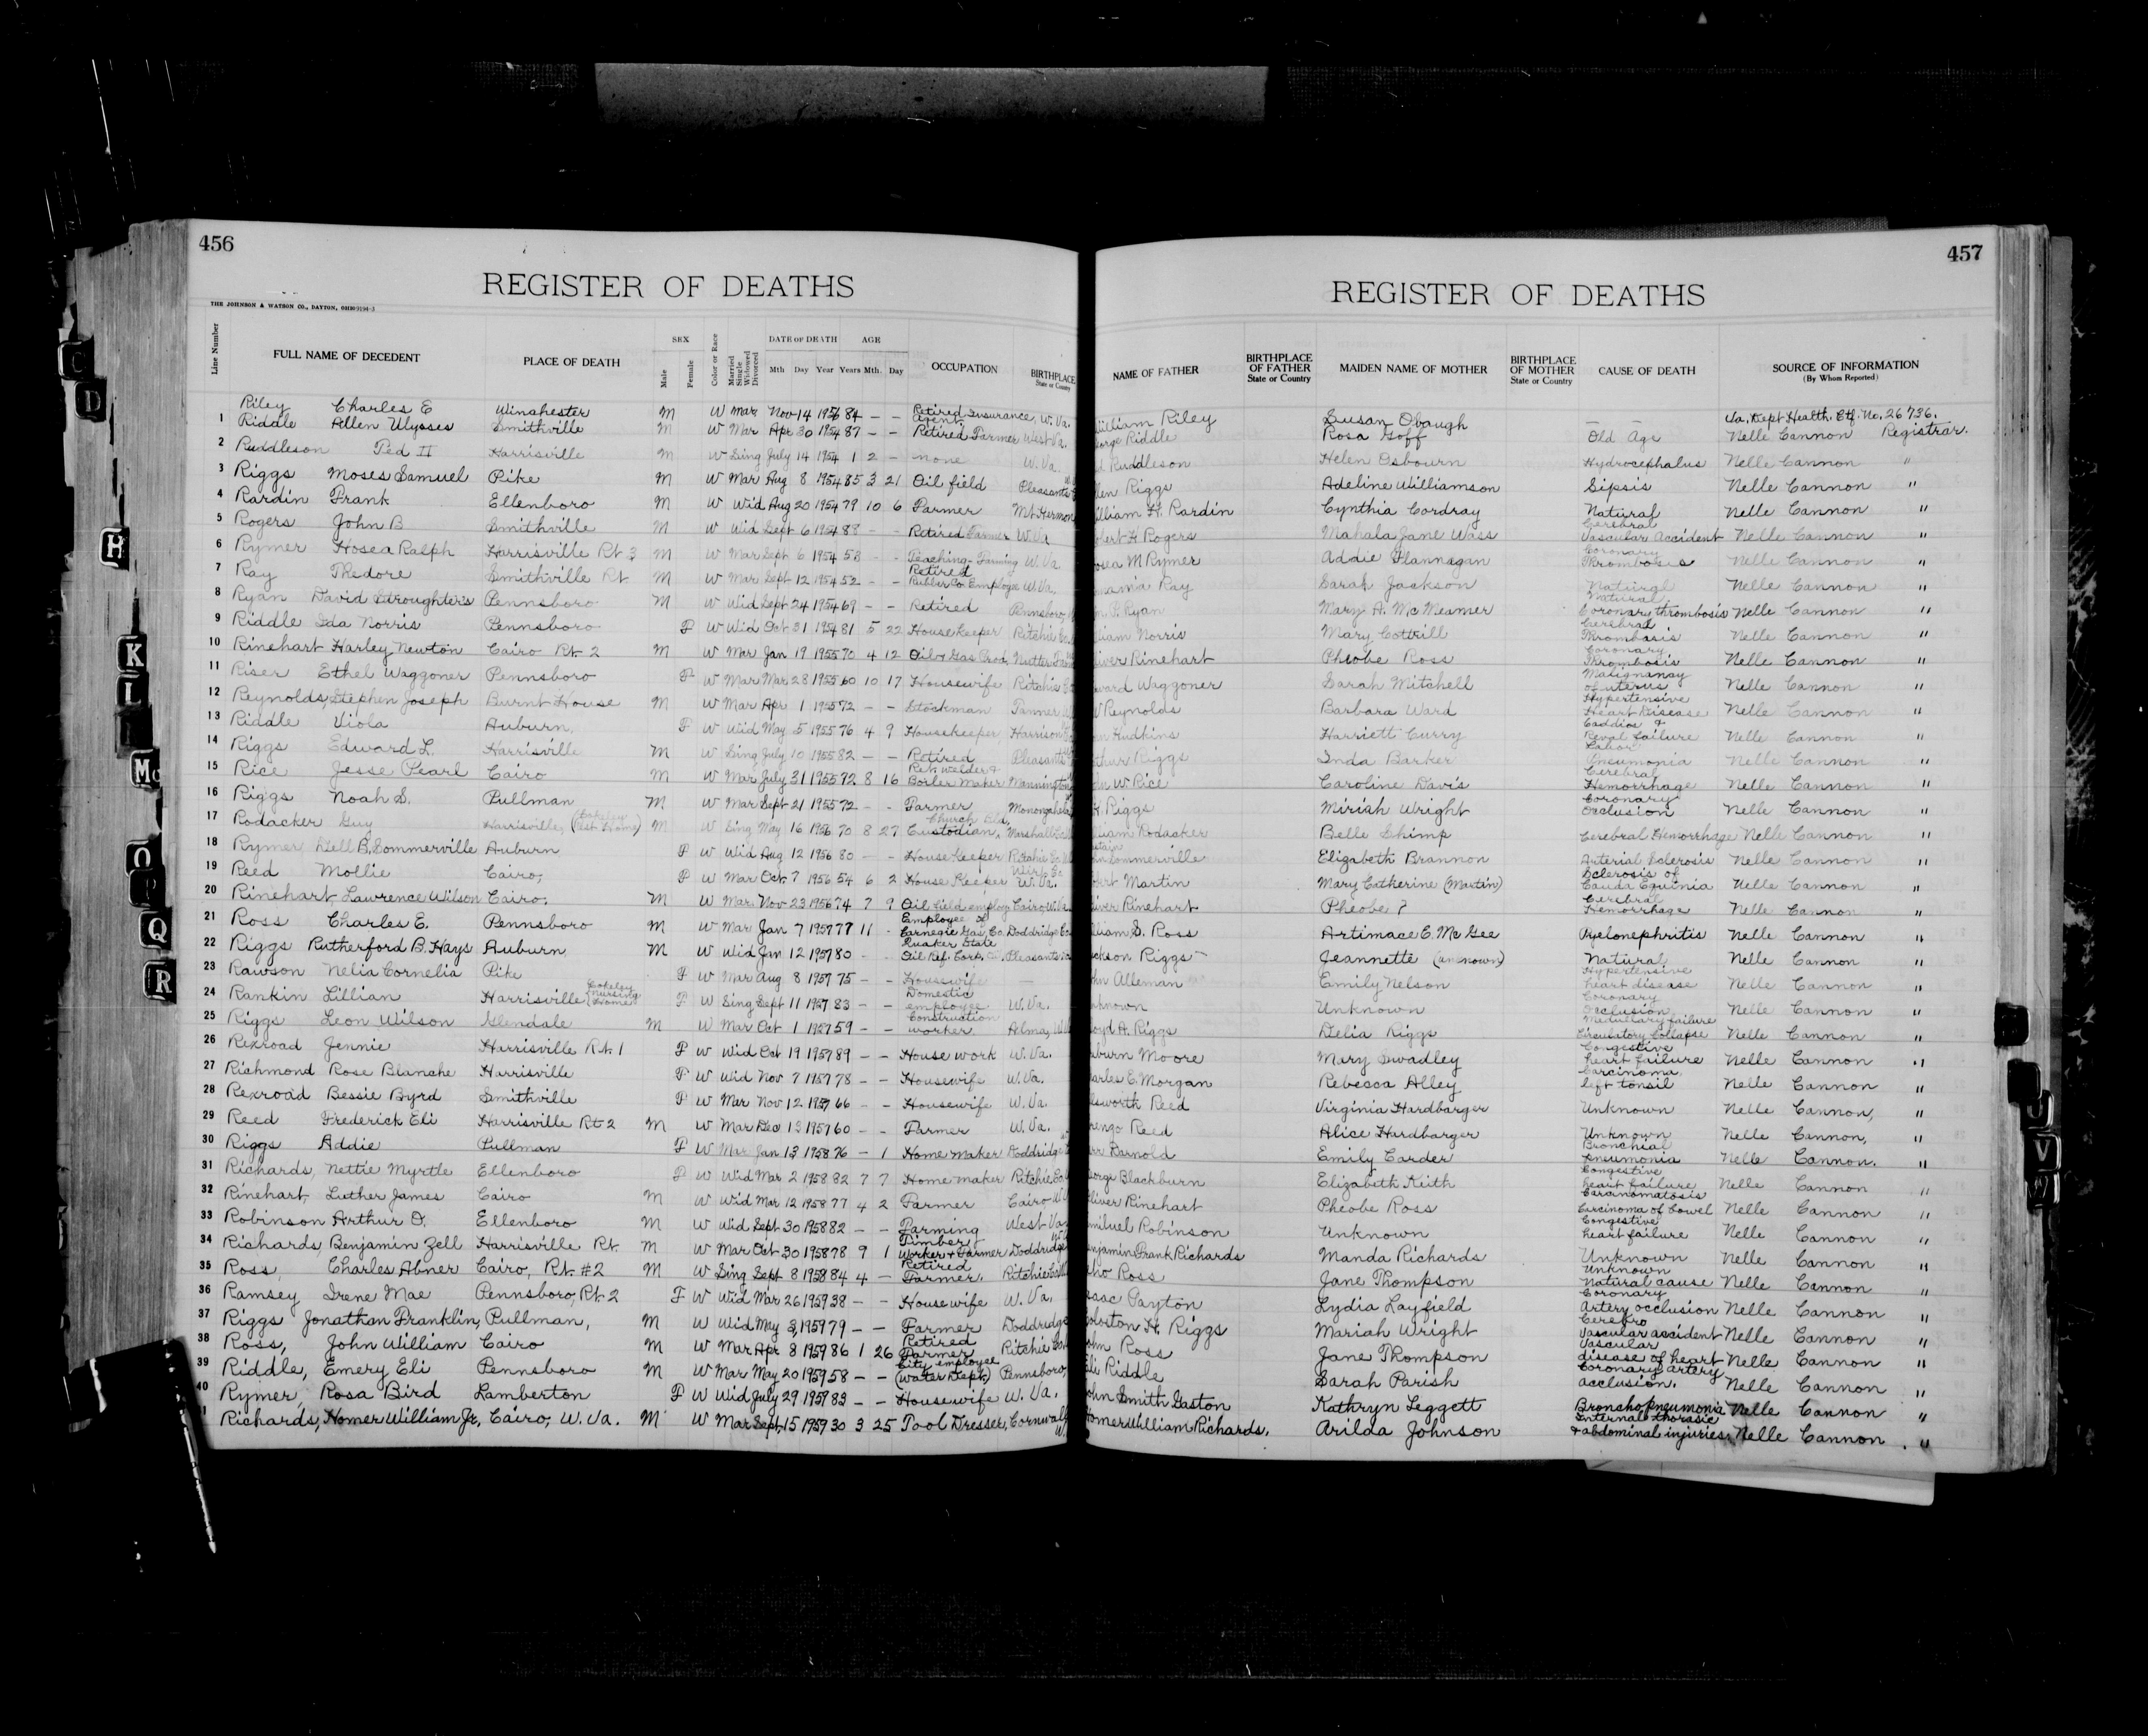 456
REGISTER OF DEATHS
THE JOHNSON & WATSON CO., DAYTON, OHIO
Line Number FULL NAME OF DECEDENT PLACE OF DEATH SEX Male Female Color or Race Married Single Widowed Divorced DATE OF DEATH Mth Day Year AGE Years Mth. Day OCCUPATION BIRTHPLACE State or Country
Riley Charles E Winchester M W Mar Nov 14 1956 84 – – Retired Insurance Agent W. Va.
1 Riddle Allen Ulysses Smithville M W Mar Apr 30 1954 87 – – Retired Farmer West Va.
2 Ruddleson Ted II Harrisville M W Sing July 14 1954 1 2 – none W. Va.
3 Riggs Moses Samuel Pike M W Mar Aug 8 1954 85 3 21 Oil field Pleasants
4 Rardin Frank Ellenboro M W Wid Aug 20 1954 79 10 6 Farmer Mt Harmon
5 Rogers John B Smithville M W Wid Sept 6 1954 88 – – Retired Farmer W. Va
6 Rymer Hosea Ralph Harrisville Rt 3 M W Mar Sept 6 1954 58 – – Teaching-Farming W. Va
7 Ray Thedore Smithville Rt M W Mar Sept 12 1954 52 – – Retired Rubber Co Employee W. Va.
8 Ryan David Pennsboro M W Wid Sept 24 1954 69 – – Retired Pennsboro
9 Riddle Ida Norris Pennsboro F W Wid Oct 31 1954 81 5 22 Housekeeper Ritchie Co.
10 Rinehart Harley Newton Cairo Rt. 2 M W Mar Jan 19 1955 70 4 12 Oil & Gas Prod. Nutter
11 Riser Ethel Waggoner Pennsboro F W Mar Mar 28 1955 60 10 17 Housewife Ritchie
12 Reynolds Stephen Joseph Burnt House M W Mar Apr 1 1955 72 – – Stockman Tanner
13 Riddle Viola Auburn, F W Wid May 5 1955 76 4 9 Housekeeper Harrison
14 Riggs Edward L. Harrisville M W Sing July 10 1955 82 – – Retired Pleasants
15 Rice Jesse Pearl Cairo M W Mar July 31 1955 72 8 16 Ret. welder & Boiler Maker Mannington
16 Riggs Noah S. Pullman M W Mar Sept 21 1955 72 – – Farmer Monongahela
17 Rodacker Guy Harrisville, M W Sing May 16 1956 70 8 27 Church Custodian, Marshall
18 Rymer Dell B. Sommerville Auburn F W Wid Aug 12 1956 80 – – House Keeper Ritchie Co.
19 Reed Mollie Cairo, F W Mar Oct. 7 1956 54 6 2 House Keeper W. Va.
20 Rinehart Lawrence Wilson Cairo. M W Mar. Nov 23 1956 74 7 9 Oil field employ Cairo W. Va.
21 Ross Charles E. Pennsboro M W Mar Jan 7 1957 77 11 – Employee of Carnegie Gas Co. Doddridge Co.
22 Riggs Rutherford B. Hays Auburn M W Wid Jan 12 1957 80 – – Quaker State Oil Ref. Corp. Pleasants
23 Rawson Nelia Cornelia Pike F W Mar Aug 8 1957 75 – – Housewife –
24 Rankin Lillian Harrisville (Cokeley Nursing Home) F W Sing Sept 11 1957 83 – – Domestic employee W. Va.
25 Riggs Leon Wilson Glendale M W Mar Oct 1 1957 59 – – Construction worker Adma,
26 Rexroad Jennie Harrisville Rt. 1 F W Wid Oct 19 1957 89 – – House work W. Va.
27 Richmond Rose Blanche Harrisville F W Wid Nov 7 1957 78 – – Housewife W. Va.
28 Rexroad Bessie Byrd Smithville F W Mar Nov 12 1957 66 – – Housewife W. Va.
29 Reed Frederick Eli Harrisville Rt 2 M W Mar Dec 13 1957 60 – – Farmer W. Va.
30 Riggs Addie Pullman F W Mar Jan 13 1958 76 – 1 Home maker Doddridge
31 Richards, Nettie Myrtle Ellenboro F W Wid Mar 2 1958 82 7 7 Home maker Ritchie Co.
32 Rinehart, Luther James Cairo M W Wid Mar 12 1958 77 4 2 Farmer Cairo
33 Robinson Arthur O. Ellenboro M W Wid Sept 30 1958 82 – – Farming West Va
34 Richards, Benjamin Zell Harrisville Rt. M W Mar Oct 30 1958 78 9 1 Timber Worker & Farmer Doddridge
35 Ross, Charles Abner Cairo, Rt. #2 M W Sing Sept 8 1958 84 4 – Retired Farmer. Ritchie
36 Ramsey Irene Mae Pennsboro, Rt. 2 F W Wid Mar 26 1959 38 – – Housewife W. Va.
37 Riggs Jonathan Franklin, Pullman, M W Wid May 3, 1959 79 – – Farmer Doddridge
38 Ross, John William Cairo M W Mar Apr 8 1959 86 1 26 Retired Farmer Ritchie
39 Riddle, Emery Eli Pennsboro M W Mar May 20 1959 58 – – City employee (Water Dept.) Pennsboro,
40 Rymer, Rosa Bird Lamberton F W Wid July 29 1959 83 – – Housewife W. Va.
Richards, Homer William Jr, Cairo, W. Va. M W Mar Sept. 15 1959 30 3 25 Tool Dresser, Cornwall
457
REGISTER OF DEATHS
NAME OF FATHER BIRTHPLACE OF FATHER State or Country MAIDEN NAME OF MOTHER BIRTHPLACE OF MOTHER State or Country CAUSE OF DEATH SOURCE OF INFORMATION (By Whom Reported)
William Riley Susan Obaugh – – Va. Dept Health. Ctf. No. 26736.
Riddle Rosa Goff Old Age Nelle Cannon Registrar.
Ruddleson Helen Osbourn Hydrocephalus Nelle Cannon "
Riggs Adeline Williamson Sipsis Nelle Cannon "
William H. Rardin Cynthia Cordray Natural Nelle Cannon "
H Rogers Mahala Jane Wass Cerebral Vascular Accident Nelle Cannon "
M Rymer Addie Flannagan Coronary Thrombosis Nelle Cannon "
Ray Sarah Jackson Natural Nelle Cannon "
Ryan Mary A. McMeamer Natural Coronary thrombosis Nelle Cannon "
Norris Mary Cottrill Cerebral Thrombosis Nelle Cannon "
Rinehart Pheobe Ross Coronary Thrombosis Nelle Cannon "
Waggoner Sarah Mitchell Malignancy of uterus Nelle Cannon "
Reynolds Barbara Ward Hypertensive Heart Disease Nelle Cannon "
Hudkins Harriett Curry Caddios & Renal failure Nelle Cannon "
Riggs Inda Barker Lobar Pneumonia Nelle Cannon "
W Rice Caroline Davis Cerebral Hemorrhage Nelle Cannon "
Riggs Miriah Wright Coronary Occlusion Nelle Cannon "
Rodacker Belle Shimp Cerebral Hemorrhage Nelle Cannon "
Sommerville Elizabeth Brannon Arterial Sclerosis Nelle Cannon "
Martin Mary Catherine (Martin) Sclerosis of Cauda Equinia Nelle Cannon "
Rinehart Pheobe ? Cerebral Hemorrhage Nelle Cannon "
S. Ross Artimace E. McGee Pyelonephritis Nelle Cannon "
Riggs Jeannette (unknown) Natural Nelle Cannon "
Alleman Emily Nelson Hypertensive heart disease Nelle Cannon "
Unknown Unknown Coronary Occlusion Nelle Cannon "
A. Riggs Delia Riggs Medullary failure Circulatory Collapse Nelle Cannon "
Moore Mary Swadley Congestive heart failure Nelle Cannon "
Charles E. Morgan Rebecca Alley Carcinoma left tonsil Nelle Cannon "
Reed Virginia Hardbarger Unknown Nelle Cannon, "
Reed Alice Hardbarger Unknown Nelle Cannon, "
Darnold Emily Carder Bronchial pneumonia Nelle Cannon. "
George Blackburn Elizabeth Keith Congestive heart failure Nelle Cannon "
Oliver Rinehart Pheobe Ross Carcinomatosis Carcinoma of bowel Nelle Cannon "
Robinson Unknown Congestive heart failure Nelle Cannon "
Benjamin Frank Richards Manda Richards Unknown Nelle Cannon "
Ross Jane Thompson Unknown Natural cause Nelle Cannon "
Isaac Payton Lydia Layfield Coronary Artery occlusion Nelle Cannon "
H. Riggs Mariah Wright Cerebro Vascular accident Nelle Cannon "
John Ross Jane Thompson Vascular disease of heart Nelle Cannon "
Eli Riddle Sarah Parish Coronary artery acclusion. Nelle Cannon "
John Smith Gaston Kathryn Leggett Bronchopneumonia Nelle Cannon "
Homer William Richards. Arilda Johnson Internal thorasic & abdominal injuries. Nelle Cannon. "
C
D
H
K
L
Mc
O
P
Q
R
U
V
W